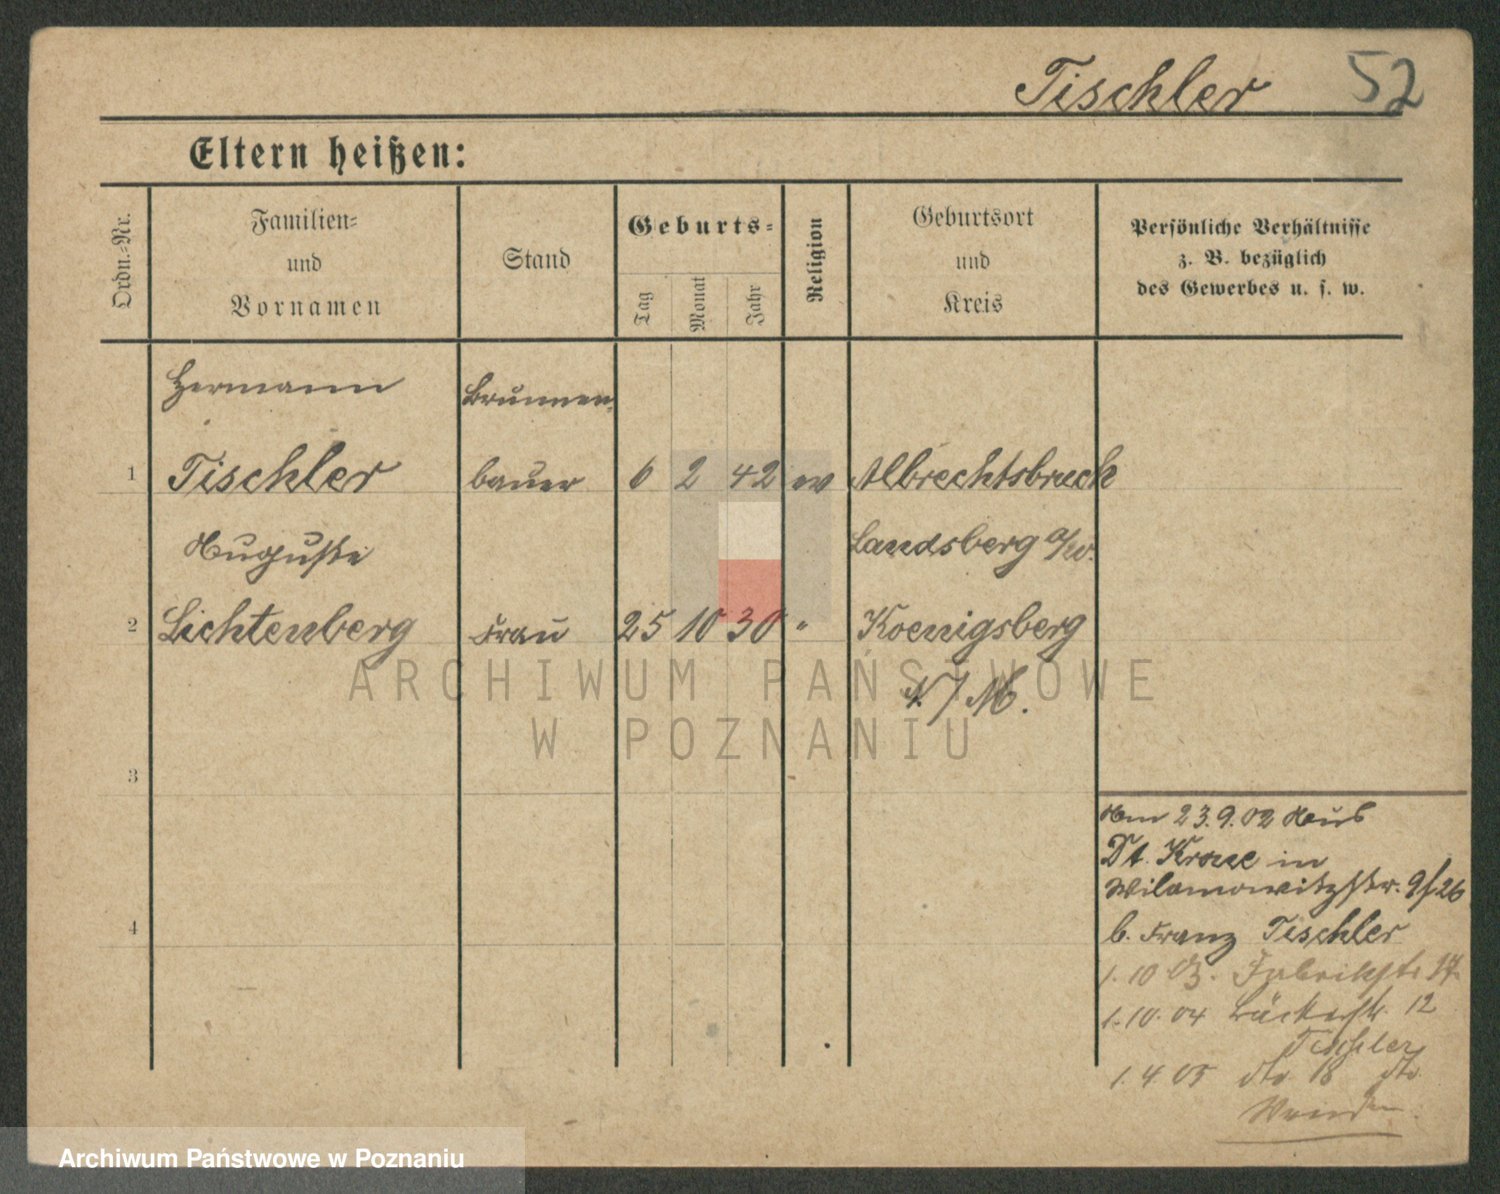 Tischler 52
Eltern heißen:
Ordn.-Nr.
Familien-
und
Vornamen
Stand
Geburts-
Tag
Monat
Jahr
Religion
Geburtsort
und
Kreis
Persönliche Verhältnisse
z. B. bezüglich
des Gewerbes u. s. w.
Hermann Brunnen
1 Tischler bauer 6 2 42 ev Albrechtsbruch
Auguste Landsberg a/w.
2 Lichtenberg Frau 25 10 30 " Koenigsberg
N/M.
3
Am 23.9.02 aus
Dt. Krone in
Wilamowitzstr. 9/26
b. Franz Tischler
4
1.10 03. Fabrikstr. 17
1.10.04 Bäckerstr. 12
Tischler
1.4.05 dto 18 dto
Wenden
ARCHIWUM PAŃSTWOWE
W POZNANIU
Archiwum Państwowe w Poznaniu